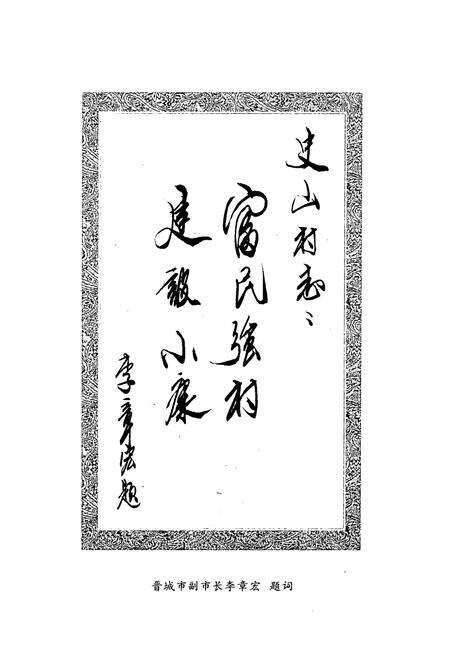 史山村志:
富民强村
建设小康
李章宏题
晋城市副市长李章宏 题词